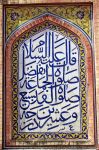 قال عليه السلام
صلاة الجماعة تفضل
صلاة الفذ بسبع
وعشرين درجة